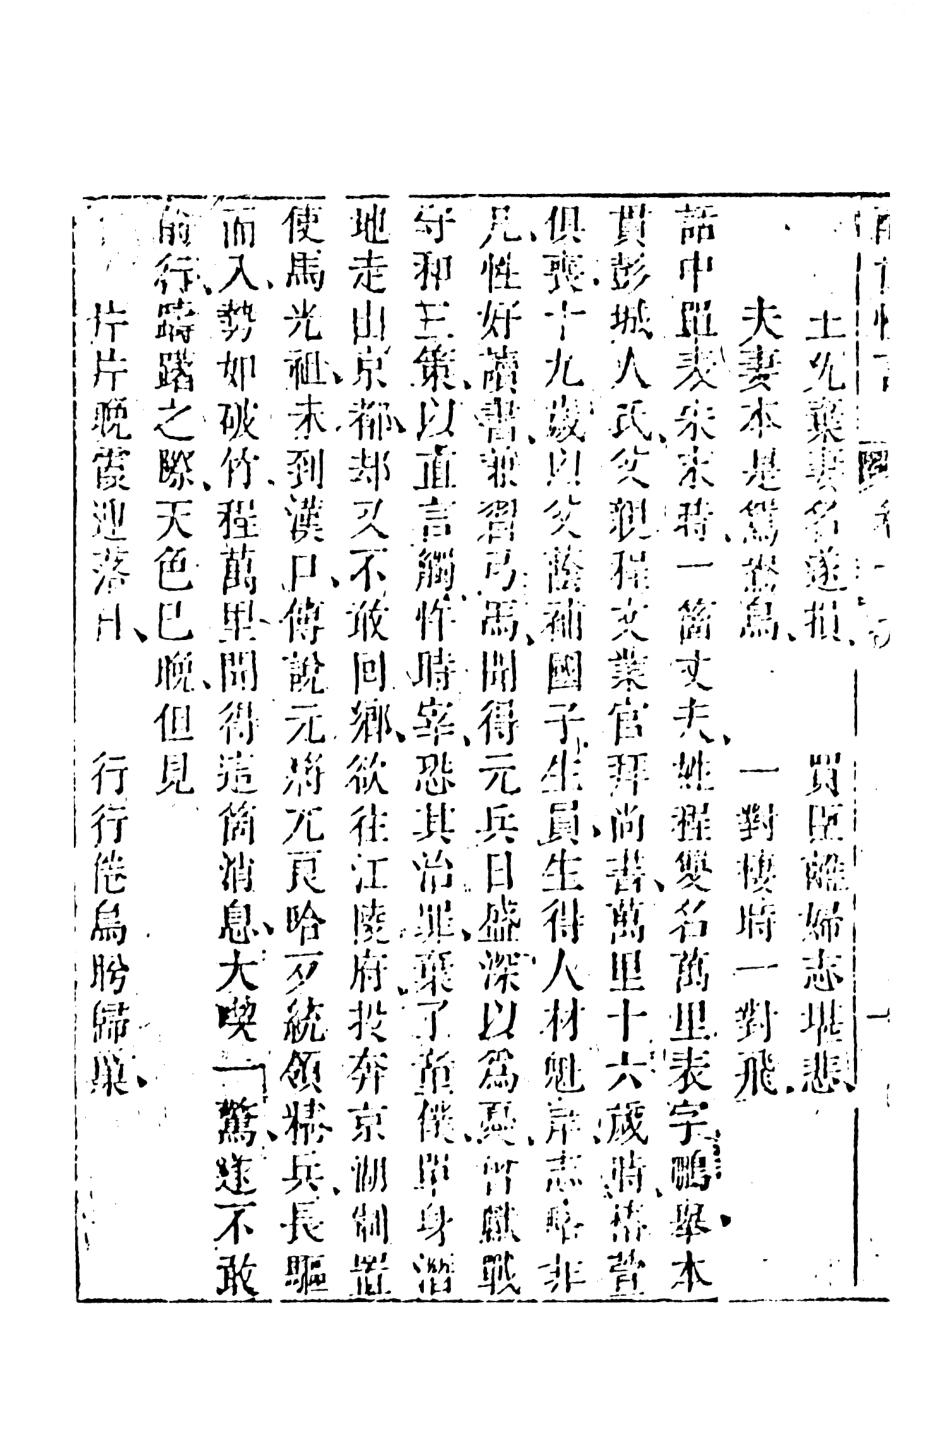 王允棄妻名遂損、　買臣離婦志堪悲、
夫妻本是鴛鴦鳥、　一對棲時一對飛、
話中單表宋末時一箇丈夫、姓程雙名萬里表字鵬舉、本
貫彭城人氏、父親程文業官拜尚書、萬里十六歲時、椿萱
俱喪、十九歲以父蔭補國子生員、生得人材魁岸、志略非
凡、性好讀書、兼習弓馬、聞得元兵日盛深以爲憂、曾獻戰
守和三策、以直言觸忤時宰、恐其治罪、棄了童僕、單身潛
地走出京都、却又不敢回鄉、欲往江陵府、投奔京湖制置
使馬光祖、未到漢口、傳說元將兀良哈歹統領精兵、長驅
而入、勢如破竹、程萬里聞得這箇消息、大喫一驚、遂不敢
前行、躊躇之際、天色已晚、但見
片片晚霞迎落日、　行行倦鳥盼歸巢、